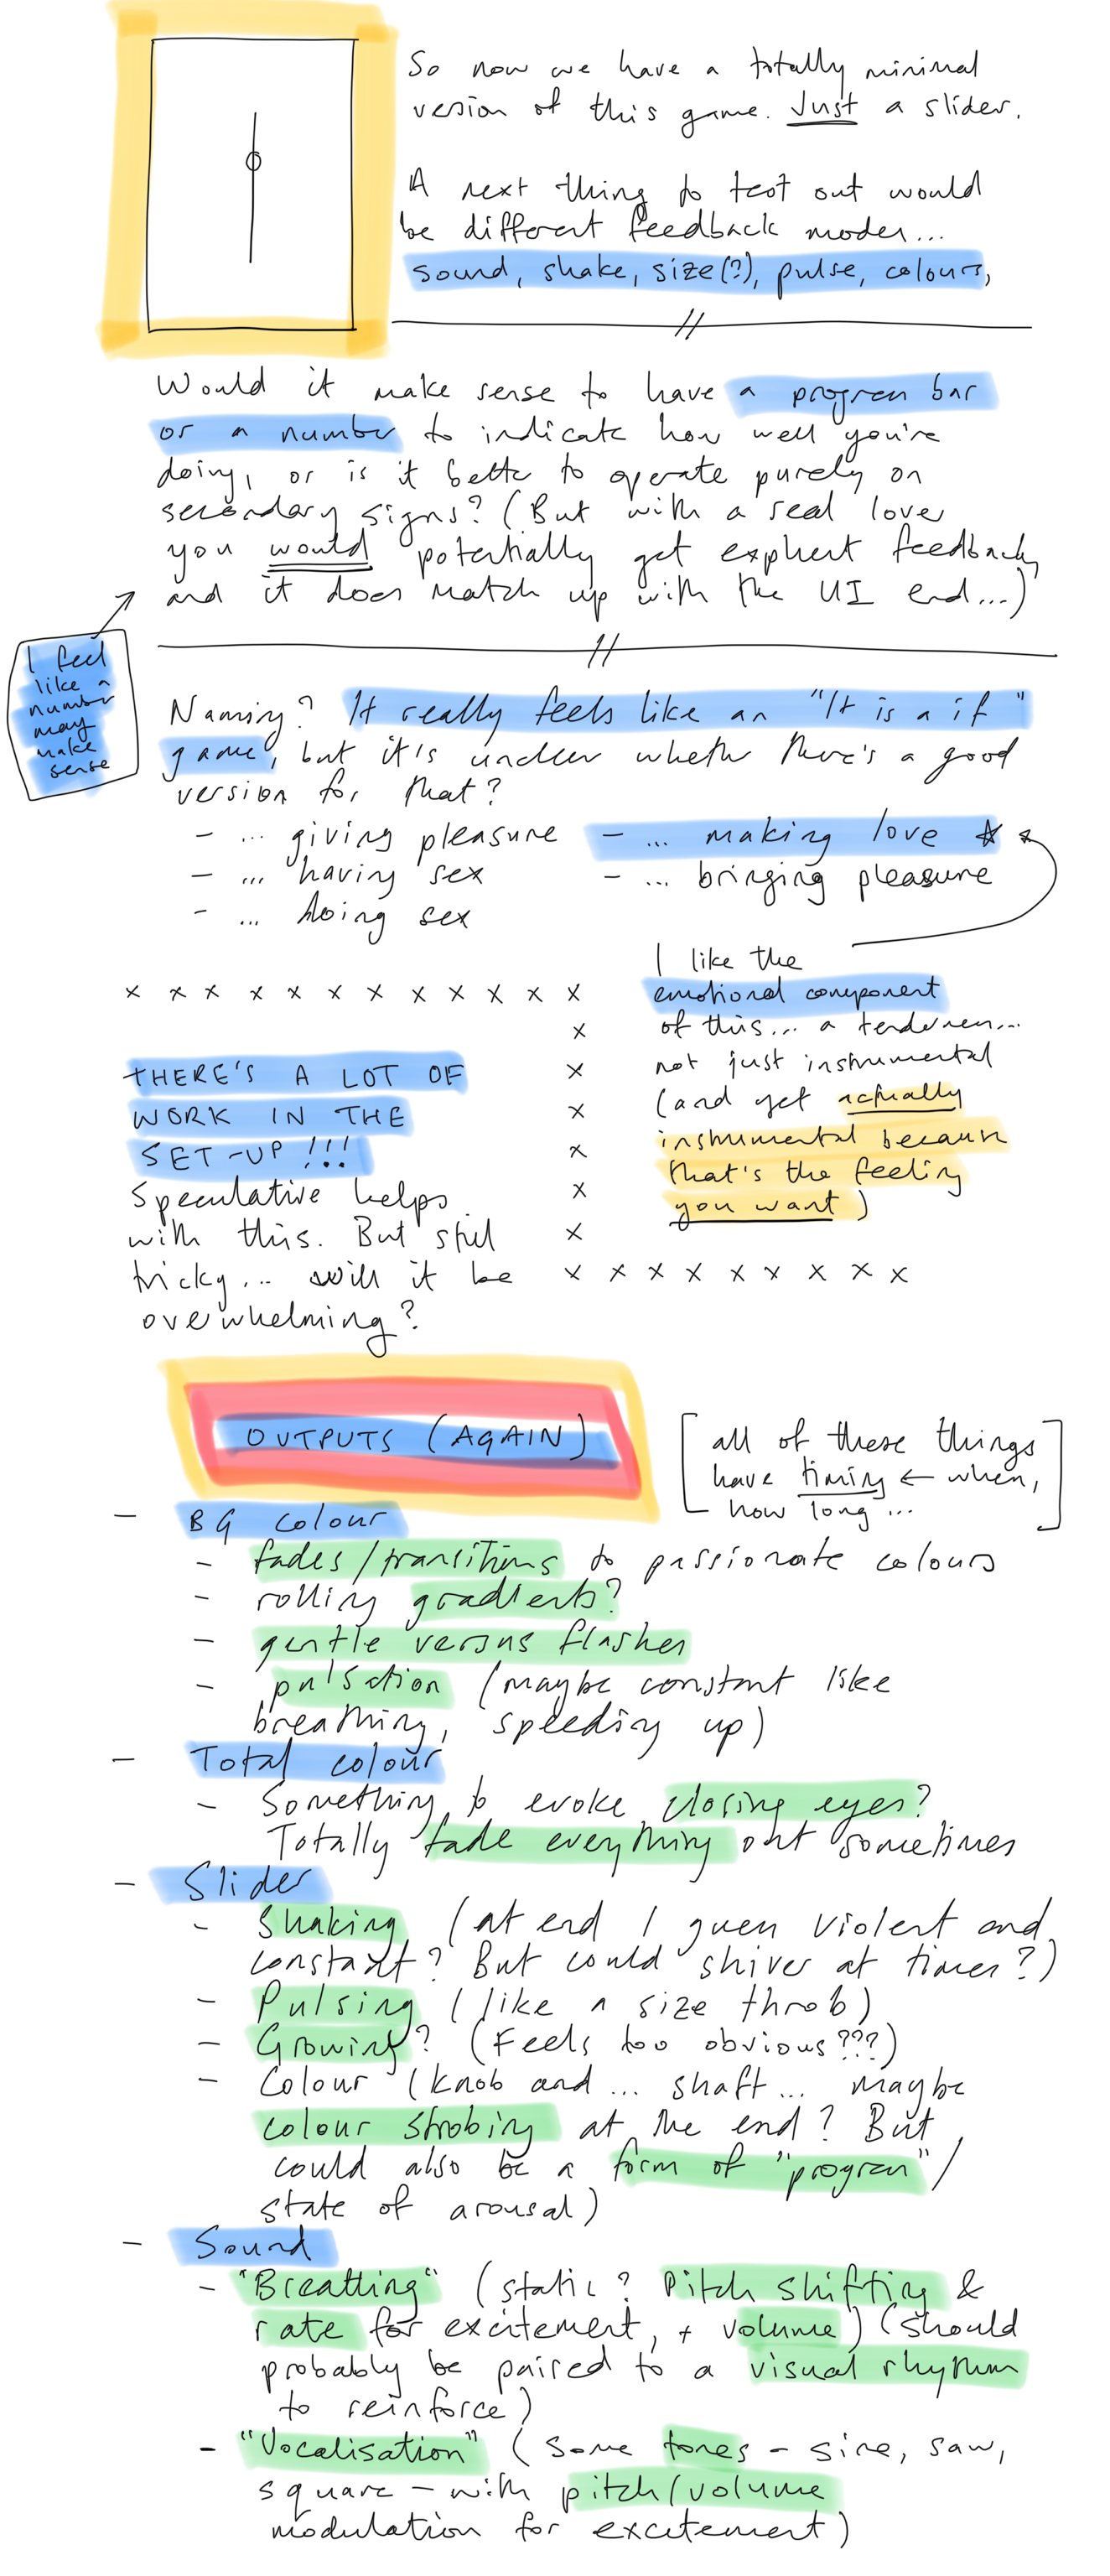 So now we have a totally minimal
version of this game. Just a slider.
A next thing to test out would
be different feedback modes...
sound, shake, size(?), pulse, colours,
Would it make sense to have a progress bar
or a number to indicate how well you're
doing, or is it better to operate purely on
secondary signs? (But with a real lover
you would potentially get explicit feedback,
and it does match up with the UI end...)
I feel
like a
number
may
make
sense
Naming? It really feels like an "It is as if"
game, but it's unclear whether there's a good
version for that?
- ... giving pleasure
- ... having sex
- ... doing sex
- ... making love
- ... bringing pleasure
I like the
emotional component
of this... a tenderness...
not just instrumental
(and yet actually
instrumental because
that's the feeling
you want)
x x x x x x x x x x x x
x
x
x
x
x
x
x x x x x x x x x
THERE'S A LOT OF
WORK IN THE
SET-UP!!!
Speculative helps
with this. But still
tricky... will it be
overwhelming?
OUTPUTS (AGAIN)
[all of these things
have timing ← when,
how long ...]
- BG colour
- fades/transitions to passionate colours
- rolling gradients?
- gentle versus flashes
- pulsation (maybe constant like
breathing, speeding up)
- Total colour
- Something to evoke closing eyes?
Totally fade everything out sometimes
- Slider
- Shaking (at end I guess violent and
constant? But could shiver at times?)
- Pulsing (like a size throb)
- Growing? (Feels too obvious???)
- Colour (knob and... shaft... maybe
colour strobing at the end? But
could also be a form of "progress"/
state of arousal)
- Sound
- "Breathing" (static? Pitch shifting &
rate for excitement, + volume) (should
probably be paired to a visual rhythm
to reinforce)
- "Vocalisation" (Some tones - sine, saw,
square - with pitch/volume
modulation for excitement)